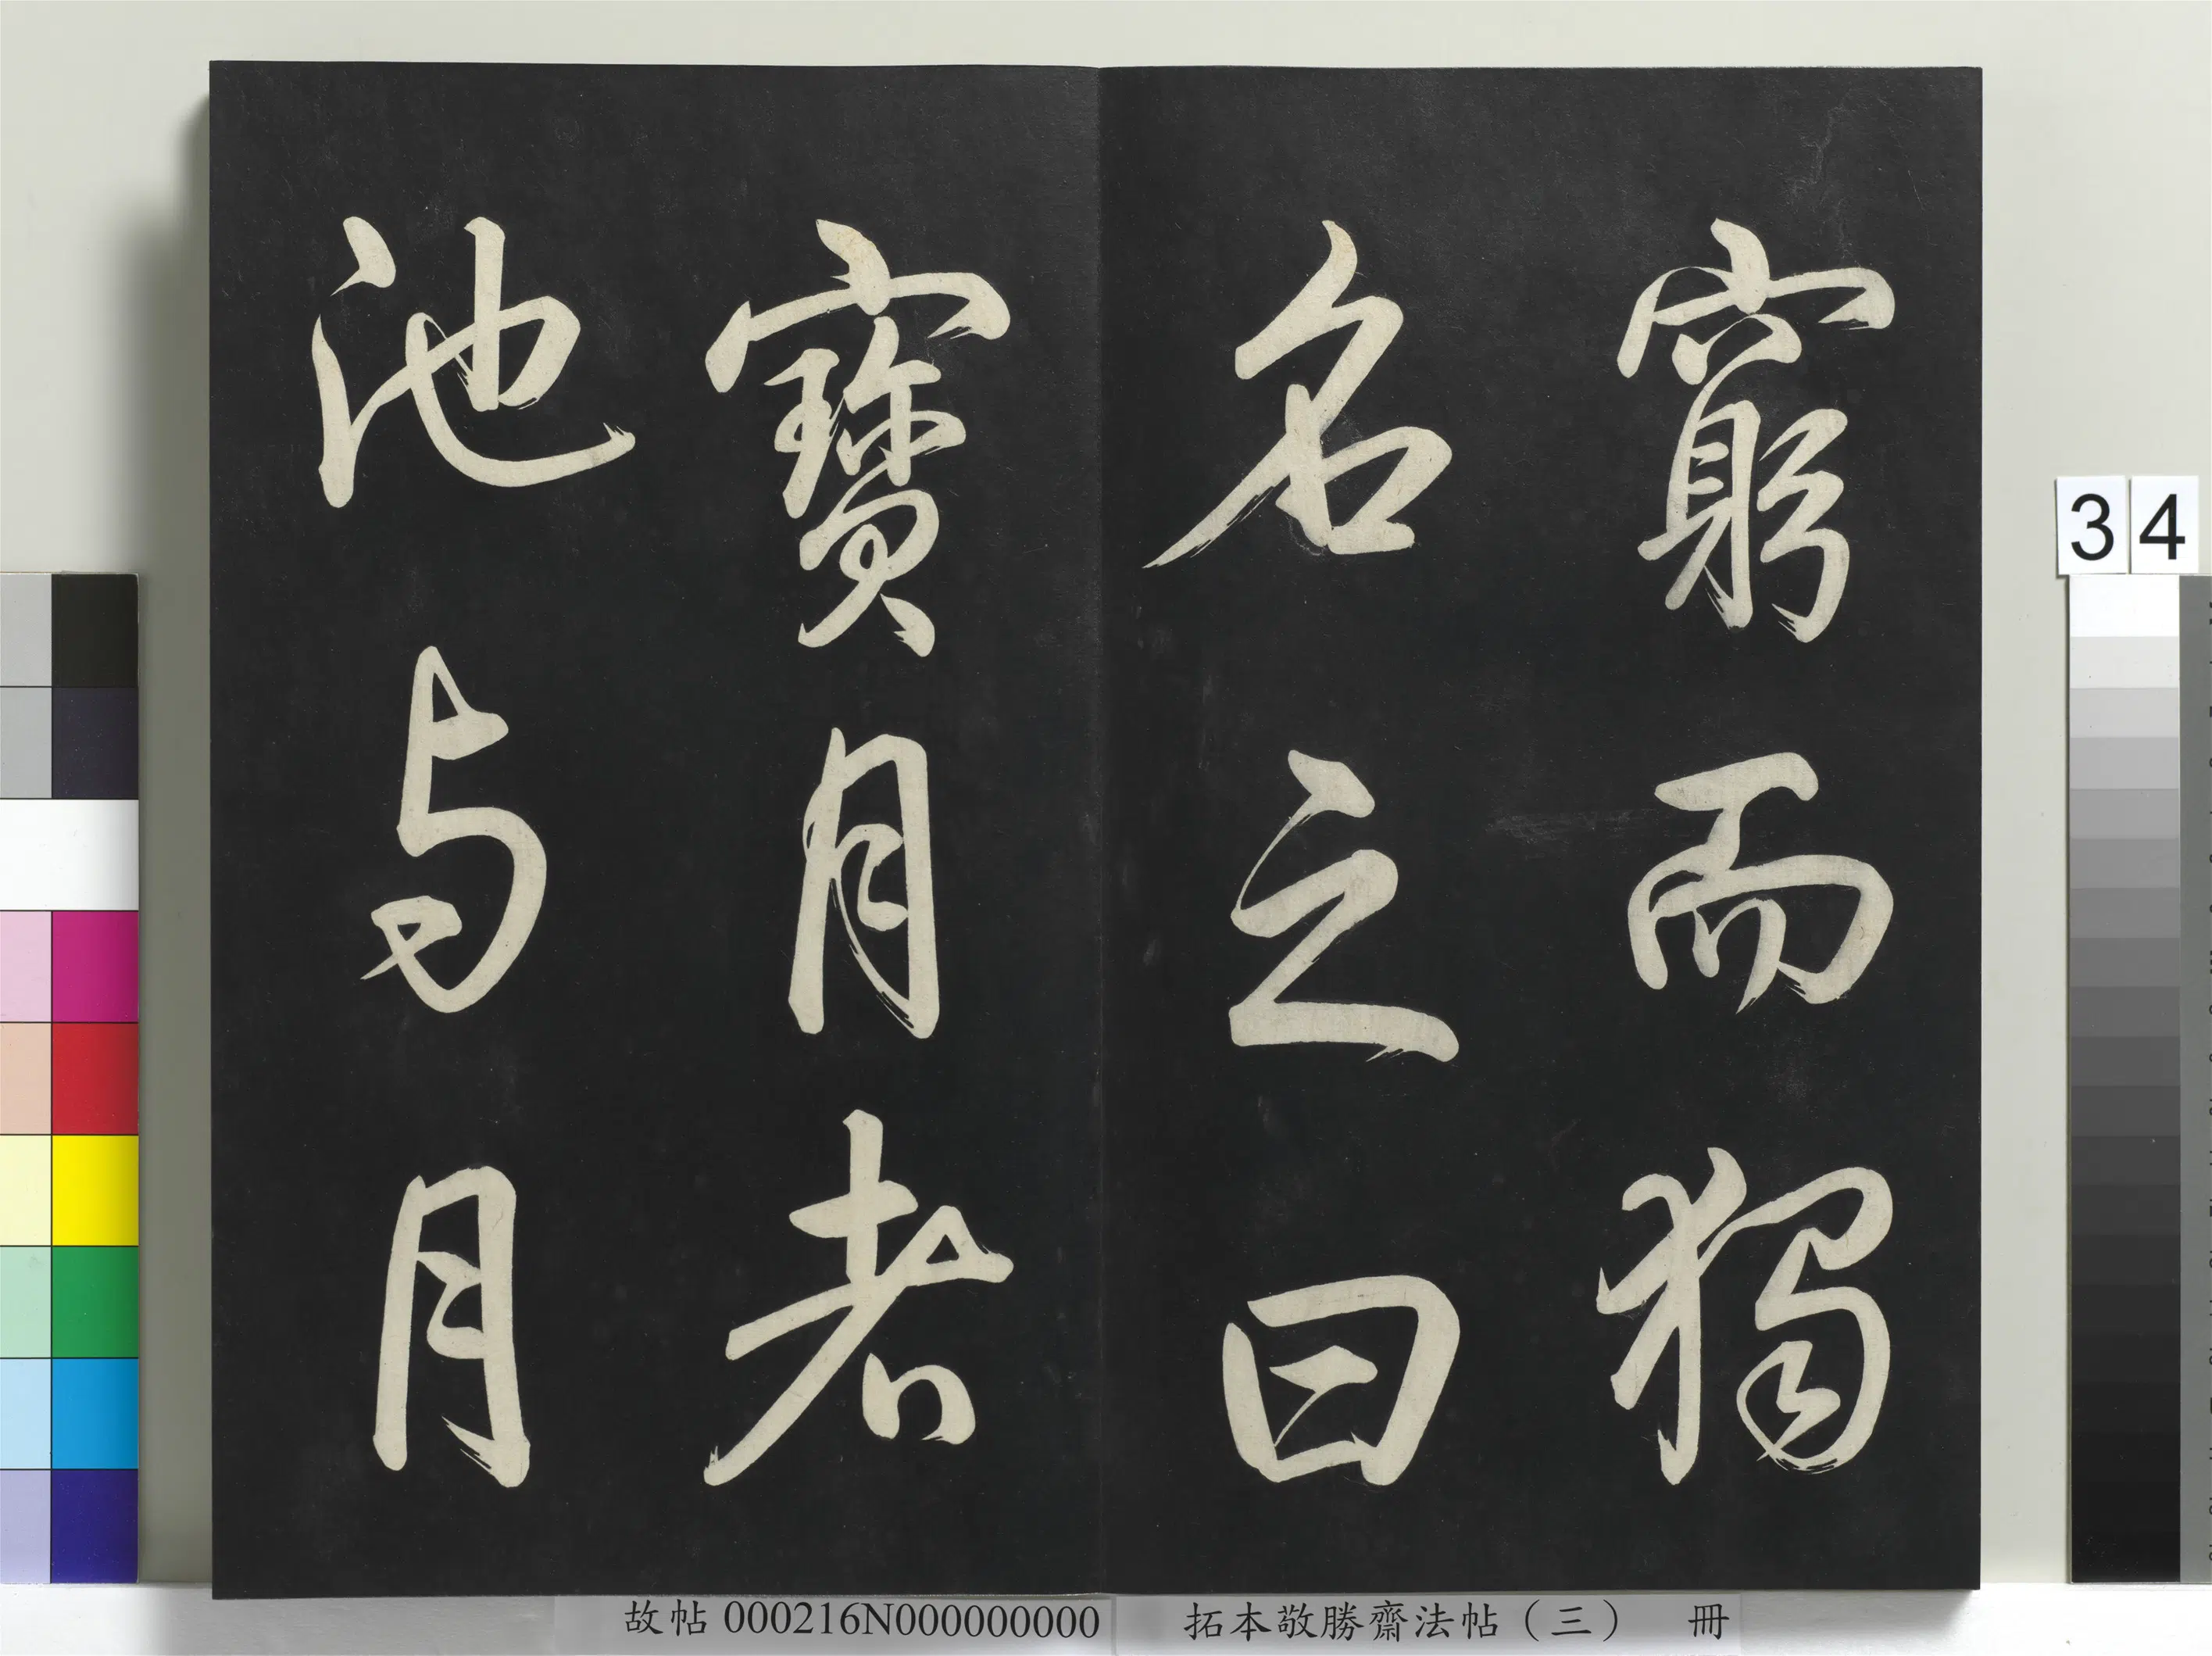 窮而獨
名之曰
寶月者
池与月
34
故帖000216N000000000 拓本敬勝齋法帖（三） 冊